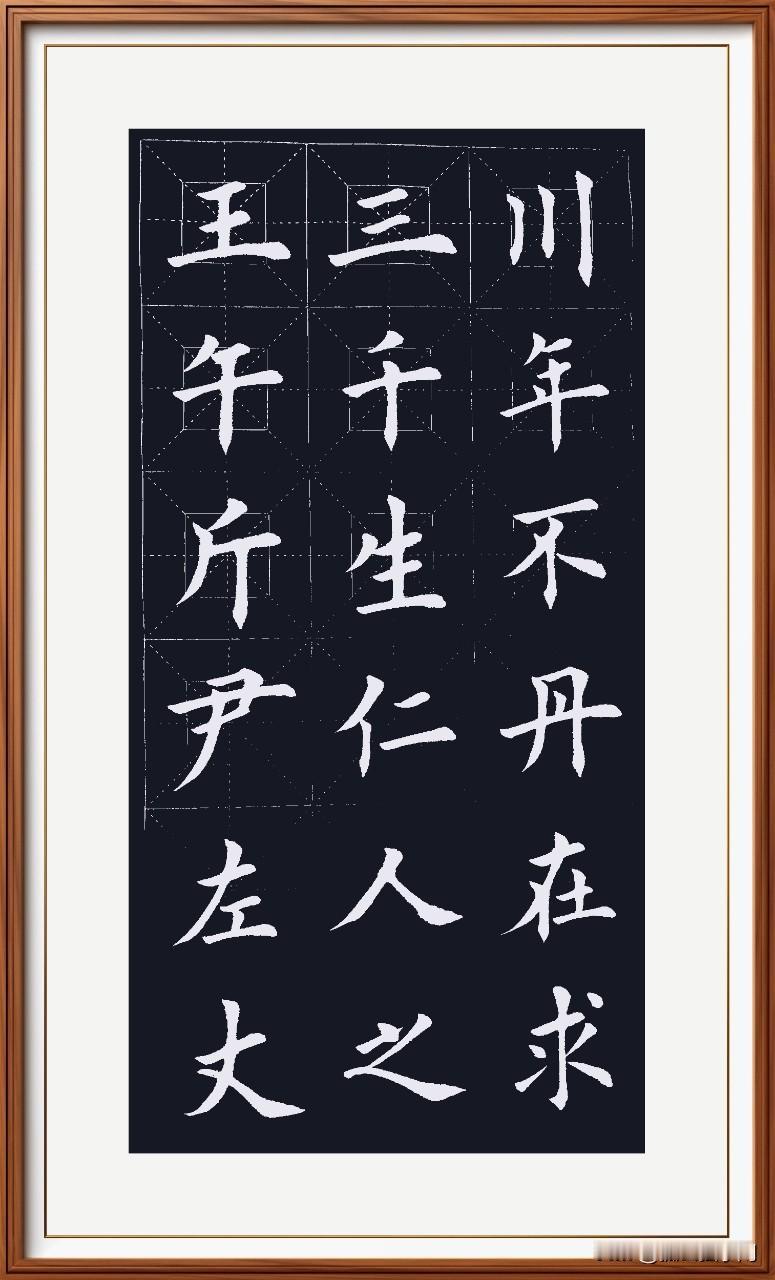 川年不丹在求
三千生仁人之
王午斤尹左丈